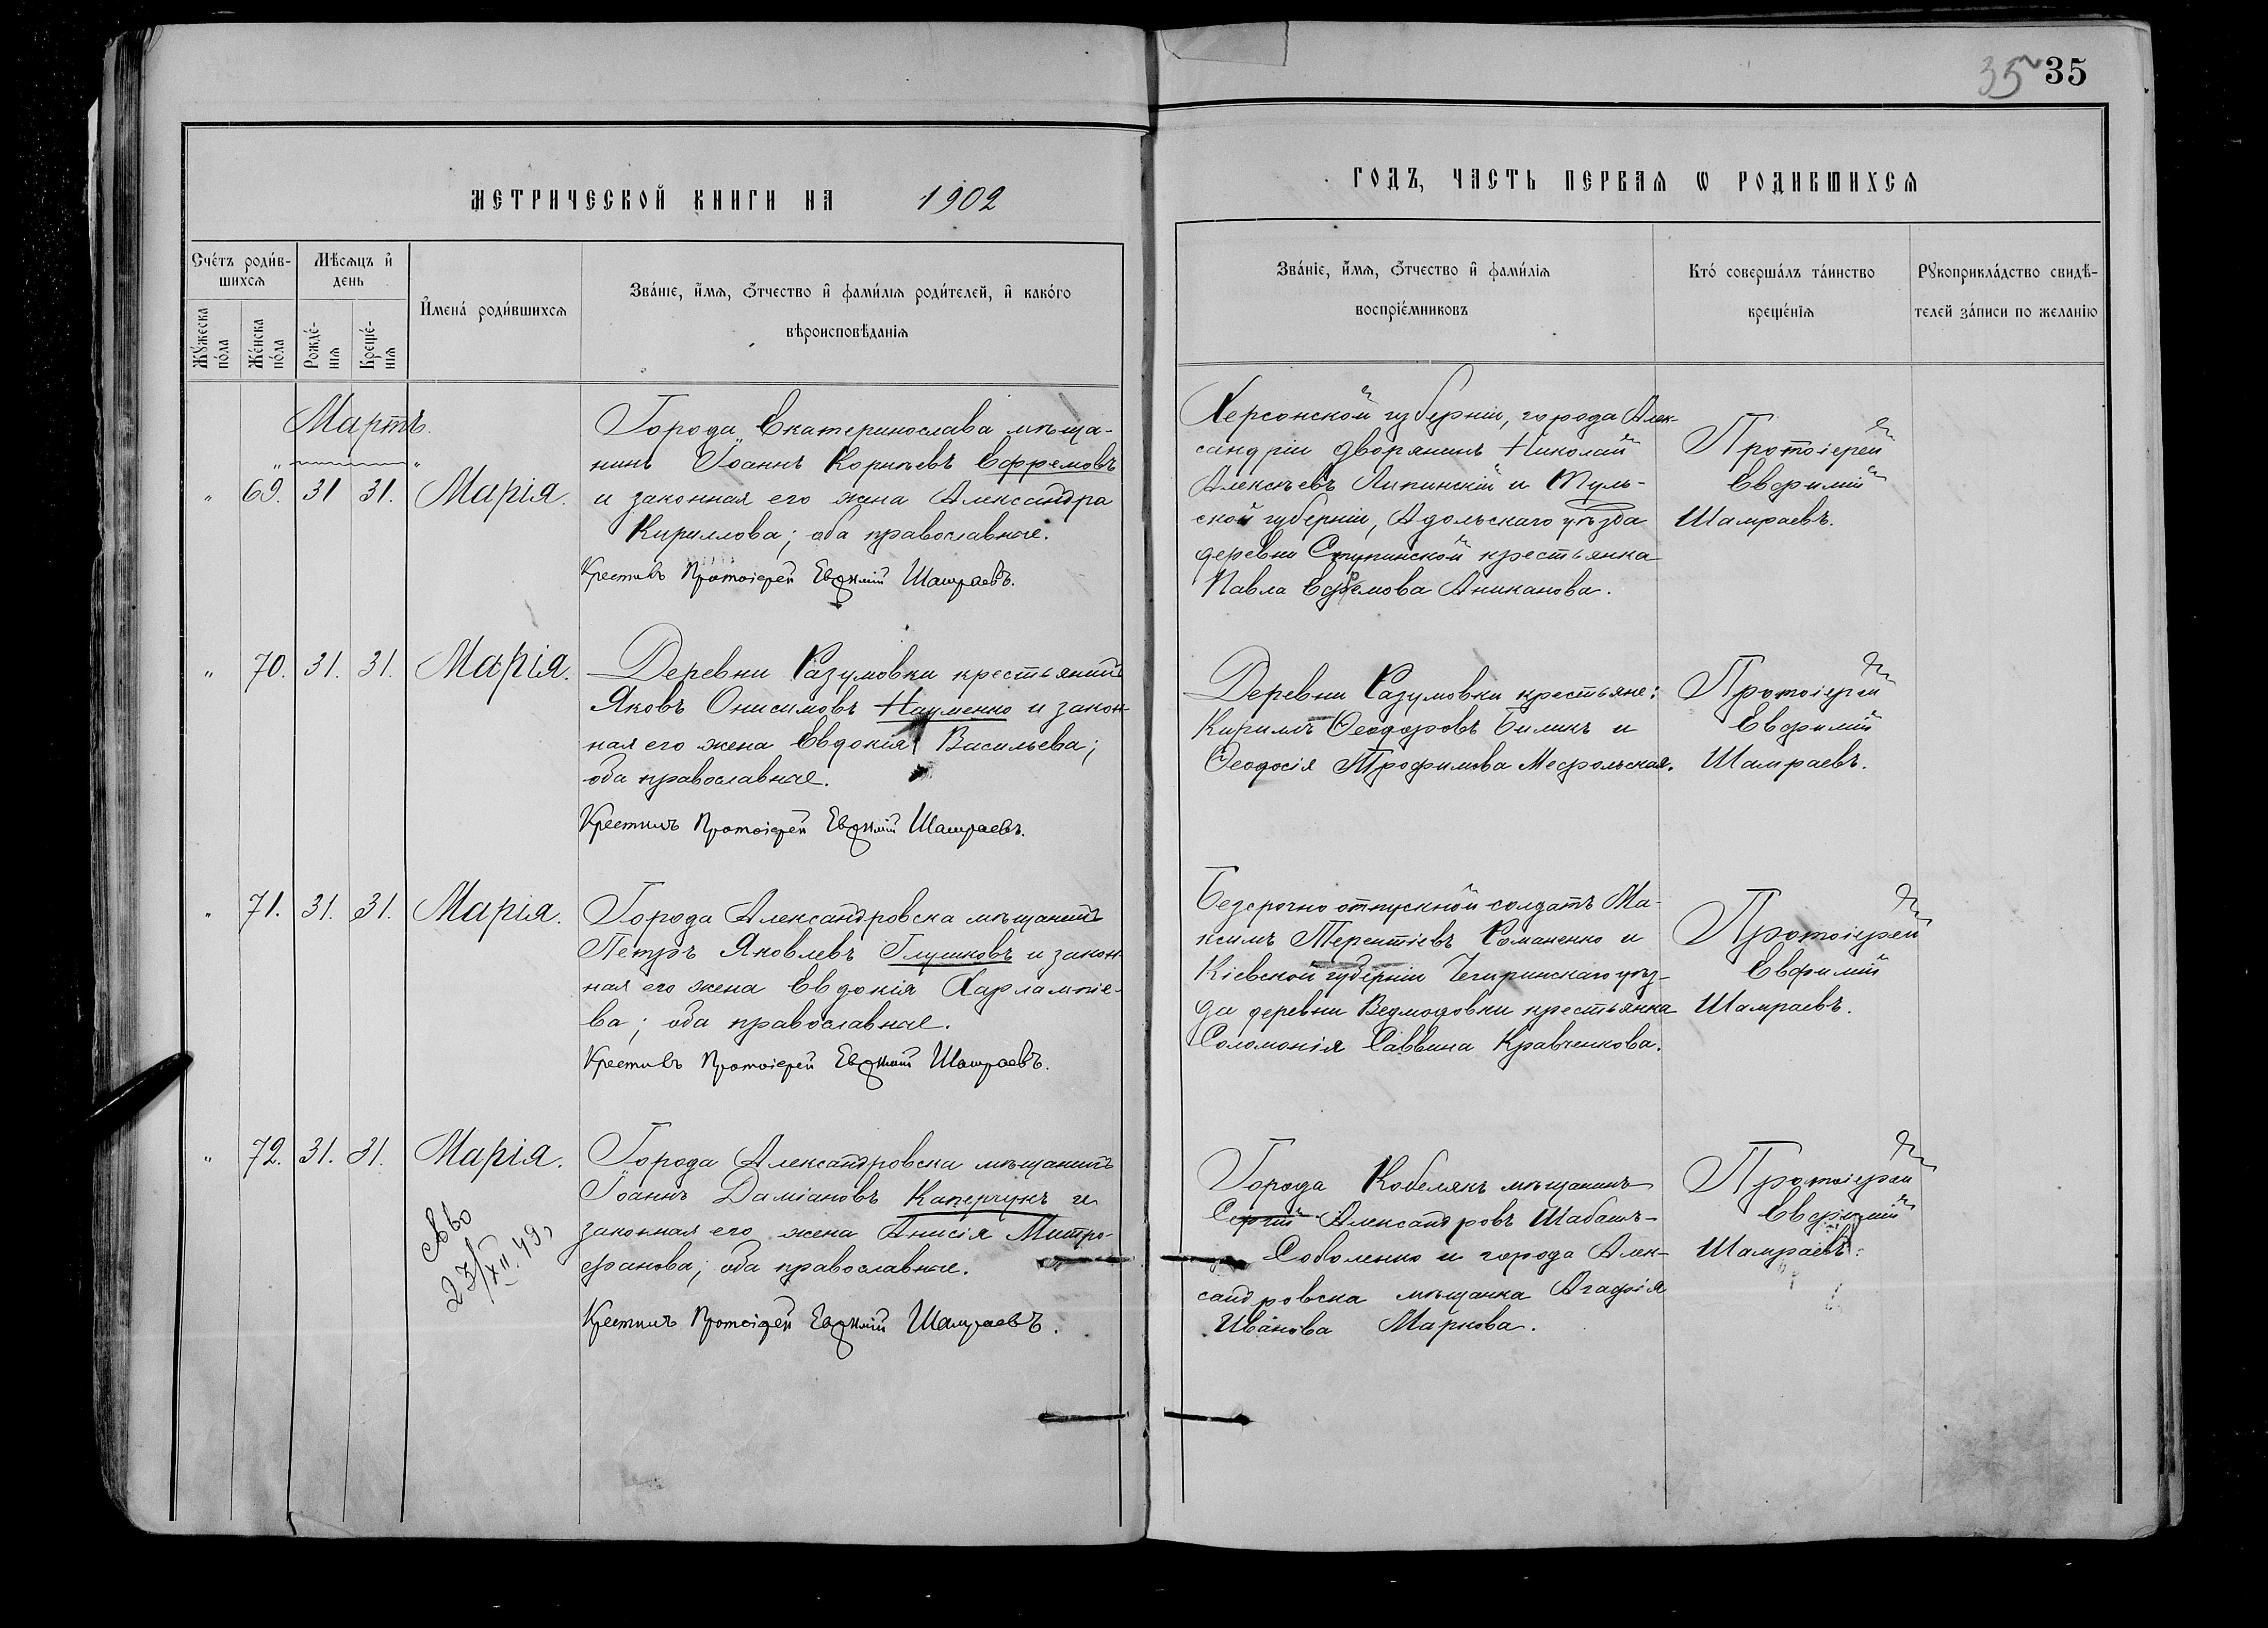 35 35
МЕТРИЧЕСКОЙ КНИГИ НА 1902
ГОДЪ, ЧАСТЬ ПЕРВАЯ Ѡ РОДИВШИХСЯ
Счетъ родившихся
Мѣсяцъ и день
Имена родившихся
Званіе, имя, отчество и фамилія родителей, и какого
вѣроисповѣданія
Мужеска пола
Женска пола
Рожденія
Крещенія
Званіе, имя, отчество и фамилія
воспріемниковъ
Кто совершалъ таинство
крещенія
Рукоприкладство свидѣ-
телей записи по желанію
Мартъ.
" 69. 31 31. Марія.
Города Екатеринослава мѣща-
нинъ Іоаннъ Корнѣевъ Ефремовъ
и законная его жена Александра
Кириллова; оба православные.
Крестилъ Протоіерей Евѳимій Шамраевъ.
Херсонской губерніи, города Алек-
сандріи дворянинъ Николай
Алексѣевъ Липинскій и Туль-
ской губерніи, уѣзда
деревни Ступинской крестьянка
Павла Ефремова Аниканова.
Протоіерей
Евфимій
Шамраевъ.
" 70. 31. 31. Марія.
Деревни Разумовки крестьянинъ
Яковъ Онисимовъ Науменко и закон-
ная его жена Евдокія Васильева;
оба православные.
Крестилъ Протоіерей Евѳимій Шамраевъ.
Деревни Разумовки крестьяне:
Кириллъ Ѳеодоровъ Билинъ и
Ѳеодосія Трофимова
Протоіерей
Евфимій
Шамраевъ.
" 71. 31. 31. Марія.
Города Александровска мѣщанинъ
Петръ Яковлевъ Глушковъ и закон-
ная его жена Евдокія Харлампіе-
ва; оба православные.
Крестилъ Протоіерей Евѳимій Шамраевъ.
Безсрочно отпускной солдатъ Ма-
ксимъ Терентіевъ Романенко и
Кіевской губерніи Чигиринскаго уѣз-
да деревни Ведмодовки крестьянка
Соломонія Саввина Кравченкова.
Протоіерей
Евфимій
Шамраевъ.
" 72. 31. 31. Марія.
27/XII.49
Города Александровска мѣщанинъ
Іоаннъ Даміановъ Каперчукъ и
законная его жена Анисія Митро-
фанова; оба православные.
Крестилъ Протоіерей Евѳимій Шамраевъ.
Города Кобелякъ мѣщанинъ
Сергій Александровъ Шабашъ-
Соболенко и города Алек-
сандровска мѣщанка Агафія
Иванова Маркова.
Протоіерей
Евфимій
Шамраевъ.